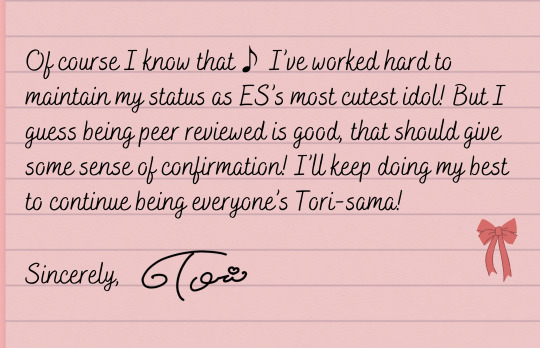 Of course I know that ♪ I've worked hard to
maintain my status as ES's most cutest idol! But I
guess being peer reviewed is good, that should give
some sense of confirmation! I'll keep doing my best
to continue being everyone's Tori-sama!
Sincerely, Tori